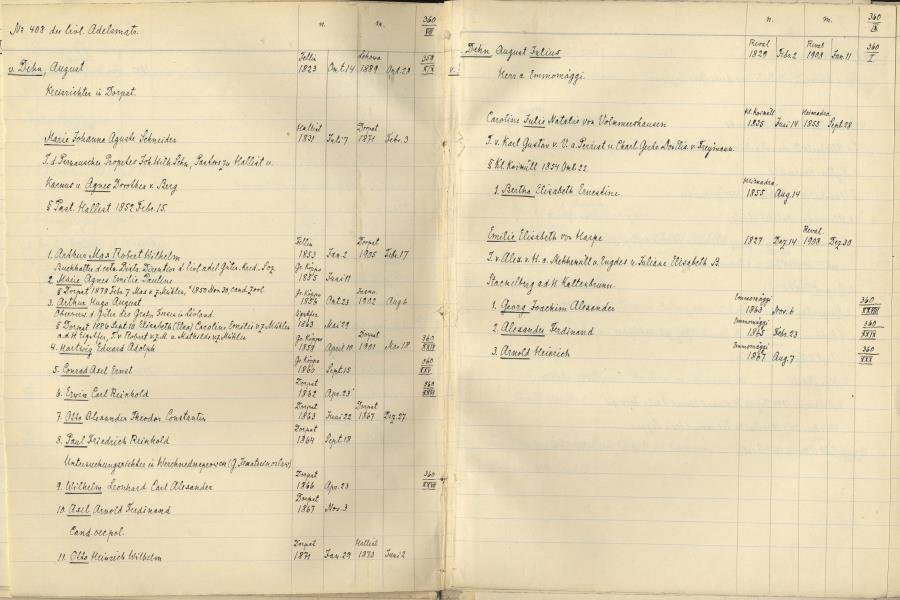 n. m. 360
VII
Nr 408 der livl. Adelsmatr.
v. Dehn, August Fellin 1823 Oct. 14 1889 Oct. 28 358 XIX
Kreisrichter in Dorpat.
Marie Johanna Auguste Schneider Hallist 1831 Juli 7 Dorpat 1871 Febr. 3
T. d. Pernauschen Propstes Joh. Wilh. Schn., Pastors zu Hallist u.
Karkus u. Agnes Dorothea v. Berg
§ Past. Hallist 1852 Febr. 15.
1. Arthur Max Robert Wilhelm Fellin 1853 Jan. 2 Dorpat 1905 Febr. 17
Buchhalter d. estn. Distr. Direction d. livl. adel. Güter. Kred. Soz.
2. Marie Agnes Emilie Pauline Gr. Köppo 1855 Juni 11
§ Dorpat 1878 Febr. 7 Max v. z. Mühlen, *1850 Nov. 30, cand. zool.
3. Arthur Hugo August Gr. Köppo 1856 Oct. 23 1902 Aug. 6
Oberverw. d. Güter des Grafen Fersen in Livland
§ Dorpat 1886 Sept. 18 Elisabeth (Elsa) Caroline Emilie v. z. Mühlen 1863 Mai 29
a. d. H. Eigstfer, T. v. Robert v. z. M. u. Mathilde v. z. Mühlen
4. Hartwig Eduard Adolph Gr. Köppo 1859 April 10 Dorpat 1901 Mai 18 360 XXIV
5. Conrad Axel Ernst Gr. Köppo 1860 Sept. 15 360 XXV
6. Erwin Carl Reinhold Dorpat 1862 Apr. 23 360 XXVI
7. Otto Alexander Theodor Constantin Dorpat 1863 Juni 22 Dorpat 1867 Dez. 27
8. Paul Friedrich Reinhold Dorpat 1864 Sept. 18
Untersuchungsrichter in Werchnedneprowsk (G. Jekaterinoslaw)
9. Wilhelm Leonhard Carl Alexander Dorpat 1866 Apr. 23 360 XXVII
10. Axel Arnold Ferdinand Dorpat 1867 Nov. 3
Cand. oec. pol.
11. Otto Heinrich Wilhelm Dorpat 1871 Jan. 29 Hallist 1873 Juni 2
n. m. 360
IX
v. Dehn August Julius Reval 1829 Febr. 2 Reval 1908 Jan. 11 360 I
Herr a. Emmomäggi.
Caroline Julie Natalie von Volmmershausen Kl. Koimüll 1835 Juni 14 Heimadra 1855 Sept. 28
T. v. Karl Gustav v. V. a. Perrist u. Charl. Gerdr. Doullis. v. Freymann
§ Kl. Koimüll 1854 Oct. 22.
1. Bertha Elisabeth Ernestine Heimadra 1855 Aug. 14
Emilie Elisabeth von Harpe 1827 Dez. 14 Reval 1908 Dez. 30
T. v. Alex. v. H. a. Mehhemüll u. Engdes u. Juliane Elisabeth B.
Stackelberg a. d. H. Kaltenbrunn.
1. Georg Joachim Alexander Emmomäggi 1863 Nov. 6 360 XXVIII
2. Alexander Ferdinand Emmomäggi 1865 Febr. 23 360 XXIX
3. Arnold Heinrich Emmomäggi 1867 Aug. 7 360 XXX